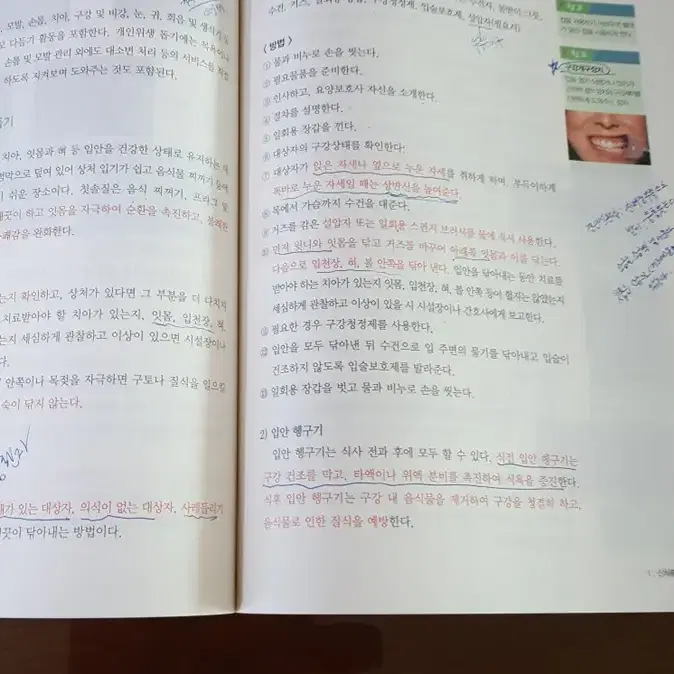 모발, 손톱, 치아, 구강 및 비강, 눈, 귀, 회음 및 생식기
다듬기 활동을 포함한다. 개인위생 돕기에는 목욕이나
손톱 및 모발 관리 외에도 대소변 처리 등의 서비스를 직접
하도록 지켜보며 도와주는 것도 포함된다.
돕기
치아, 잇몸과 혀 등 입안을 건강한 상태로 유지하는 데
점막으로 덮여 있어 상처 입기가 쉽고 음식물 찌꺼기
쉬운 장소이다. 칫솔질은 음식 찌꺼기, 프라그 및
깨끗이 하고 잇몸을 자극하여 순환을 촉진하고, 불쾌한
쾌감을 완화한다.
는지 확인하고, 상처가 있다면 그 부분을 더 다치지
치료받아야 할 치아가 있는지, 잇몸, 입천장, 혀,
는지 세심하게 관찰하고 이상이 있으면 시설장이나
다.
안쪽이나 목젖을 자극하면 구토나 질식을 일으킬
숙이 닦지 않는다.
가 있는 대상자, 의식이 없는 대상자, 사레들리기
끗이 닦아내는 방법이다.
수건, 거즈, 일회용 장갑, 구강청정제, 입술보호제, 설압자(필요시)
〈방법〉
① 물과 비누로 손을 씻는다.
② 필요물품을 준비한다.
③ 인사하고, 요양보호사 자신을 소개한다.
④ 절차를 설명한다.
⑤ 일회용 장갑을 낀다.
⑥ 대상자의 구강상태를 확인한다.
⑦ 대상자가 앉은 자세나 옆으로 누운 자세를 취하게 하며, 부득이하게
똑바로 누운 자세일 때는 상반신을 높여준다.
⑧ 목에서 가슴까지 수건을 대준다.
⑨ 거즈를 감은 설압자 또는 일회용 스펀지 브러쉬를 물에 적셔 사용한다.
⑩ 먼저 윗니와 잇몸을 닦고 거즈를 바꾸어 아래쪽 잇몸과 이를 닦는다.
다음으로 입천장, 혀, 볼 안쪽을 닦아 낸다. 입안을 닦아내는 동안 치료를
받아야 하는 치아가 있는지 잇몸, 입천장, 혀, 볼 안쪽 등이 헐지는 않았는지
세심하게 관찰하고 이상이 있을 시 시설장이나 간호사에게 보고한다.
⑪ 필요한 경우 구강청정제를 사용한다.
⑫ 입안을 모두 닦아낸 뒤 수건으로 입 주변의 물기를 닦아내고 입술이
건조하지 않도록 입술보호제를 발라준다.
⑬ 일회용 장갑을 벗고 물과 비누로 손을 씻는다.
2) 입안 헹구기
입안 헹구기는 식사 전과 후에 모두 할 수 있다. 식전 입안 헹구기는
구강 건조를 막고, 타액이나 위액 분비를 촉진하여 식욕을 증진한다.
식후 입안 헹구기는 구강 내 음식물을 제거하여 구강을 청결히 하고,
음식물로 인한 질식을 예방한다.
참고